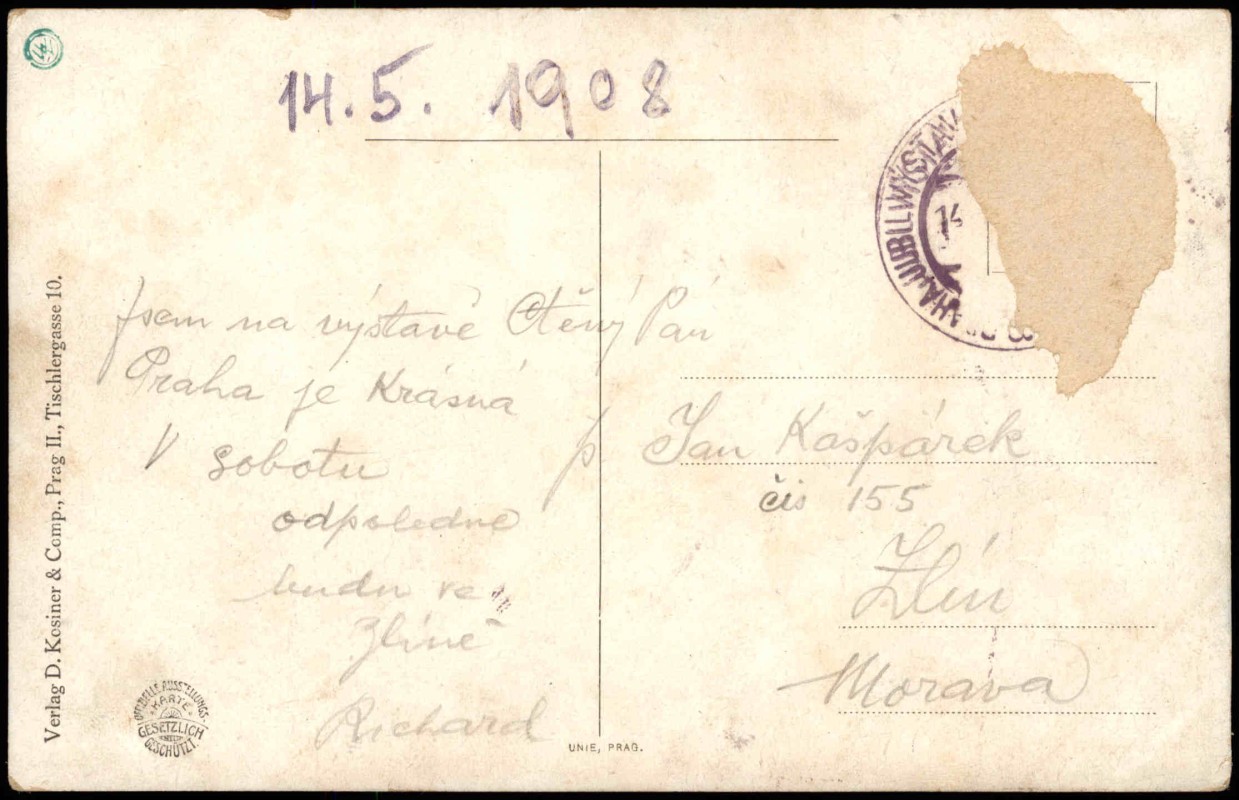 14. 5. 1908
Jsem na výstavě Ctěný Pán
Praha je Krásná
V sobotu
odpoledne
budu ve
Zlíně
Richard
p Jan Kašpárek
čís 155
Zlín
Morava
Verlag D. Kosiner & Comp., Prag II., Tischlergasse 10.
OFFIZIELLE AUSSTELLUNGS-
KARTE
GESETZLICH
GESCHÜTZT.
UNIE, PRAG.
14